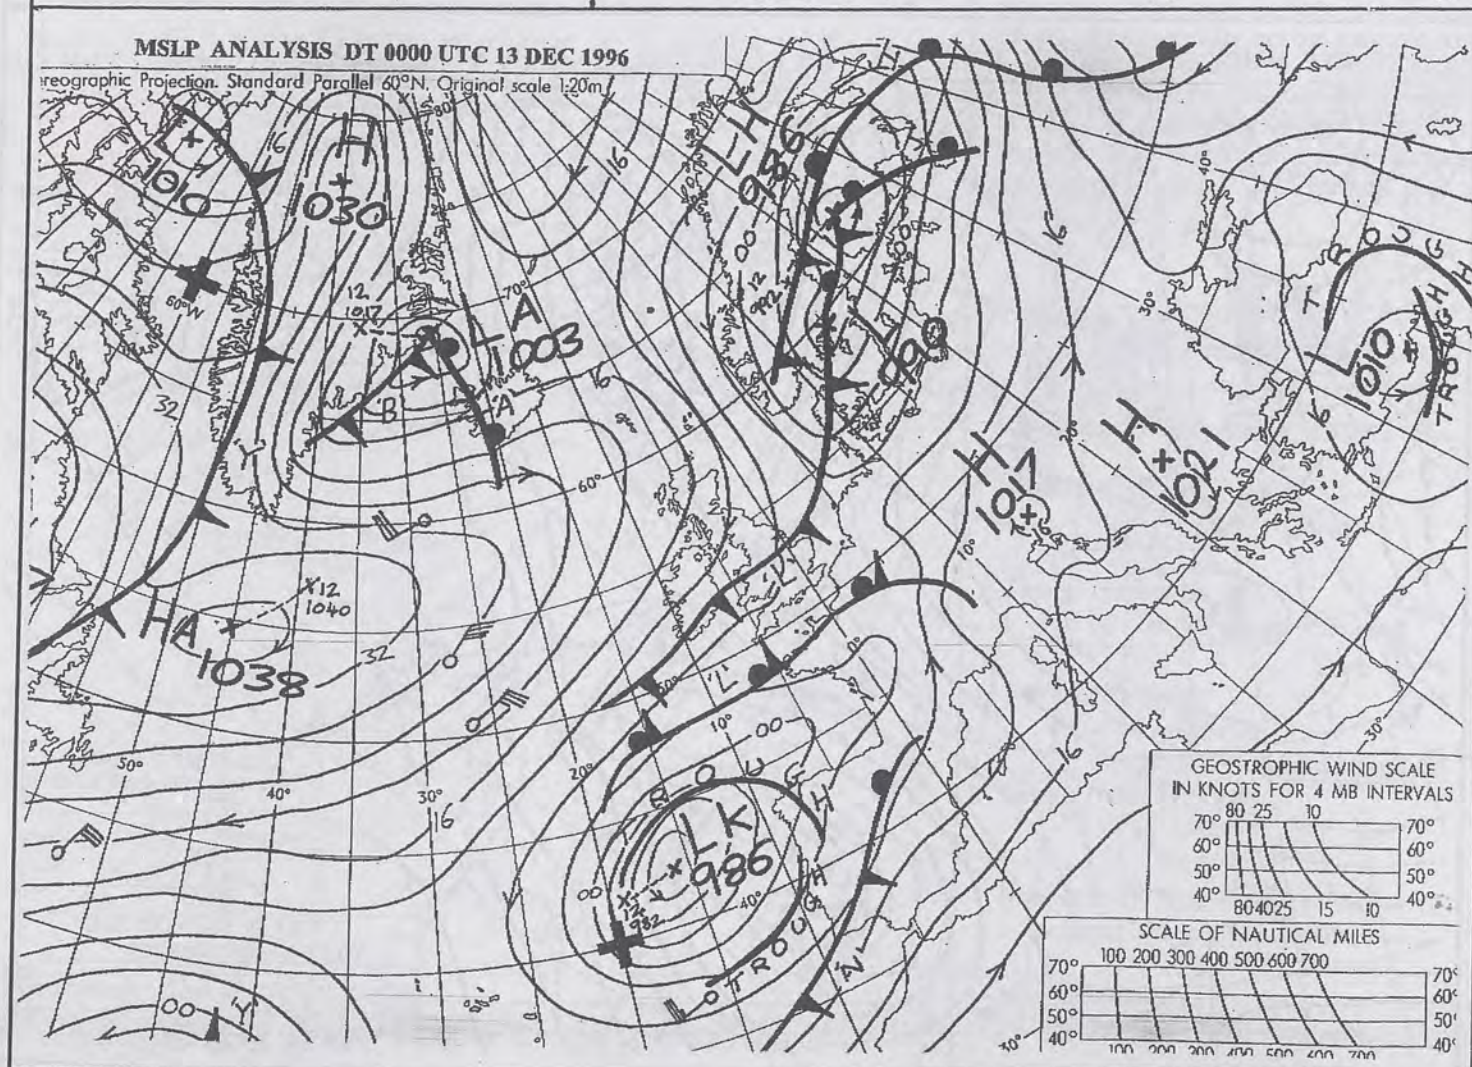 MSLP ANALYSIS DT 0000 UTC 13 DEC 1996
reographic Projection. Standard Parallel 60°N. Original scale 1:20m
80°
L
1010
16
H
1030
60°W
12
1017
70°
L A
1003
'B'
'A'
16
32
16
LH
986
00
12
992
L
990
16
40°
30°
20°
TROUGH
L
1010
TROUGH
16
H
1021
H
1017
10°
60°
X12
1040
HA
1038
32
'L'
50°
'L'
10°
0°
00
50°
40°
30°
20°
16
16
TROUGH
LK
986
00
12
982
40°
TROUGH
'N'
30°
00
'Y'
GEOSTROPHIC WIND SCALE
IN KNOTS FOR 4 MB INTERVALS
80 25 10
70° 70°
60° 60°
50° 50°
40° 40°
80 40 25 15 10
SCALE OF NAUTICAL MILES
100 200 300 400 500 600 700
70° 70°
60° 60°
50° 50°
40° 40°
100 200 300 400 500 600 700